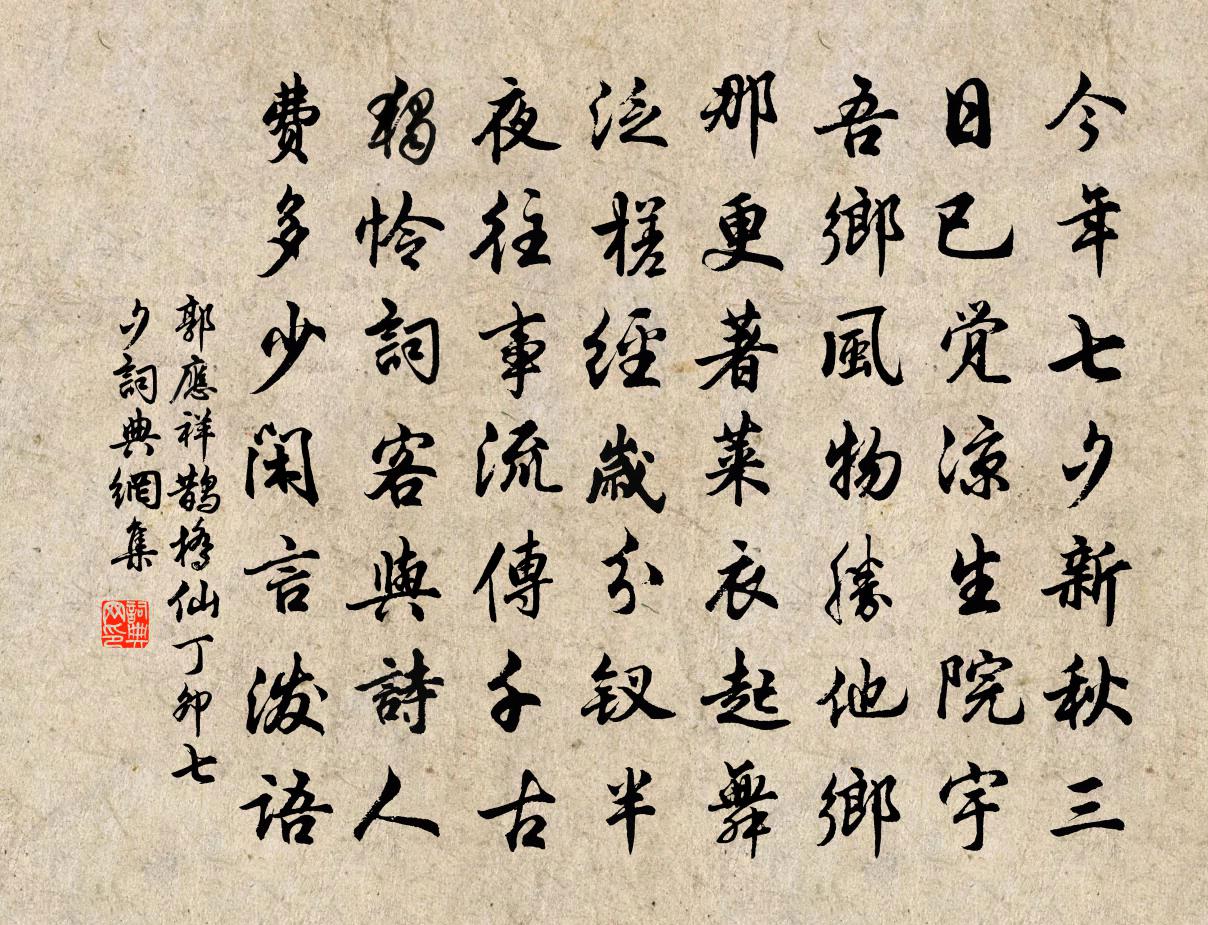 今年七夕新秋三
日已覚涼生院宇
吾鄉風物勝他鄉
那更著萊衣起舞
泛槎經歲分釵半
夜往事流傳千古
獨怜詞客與詩人
費多少閑言潑語
郭應祥鵲橋仙丁卯七
夕詞典網集
詞典
网印